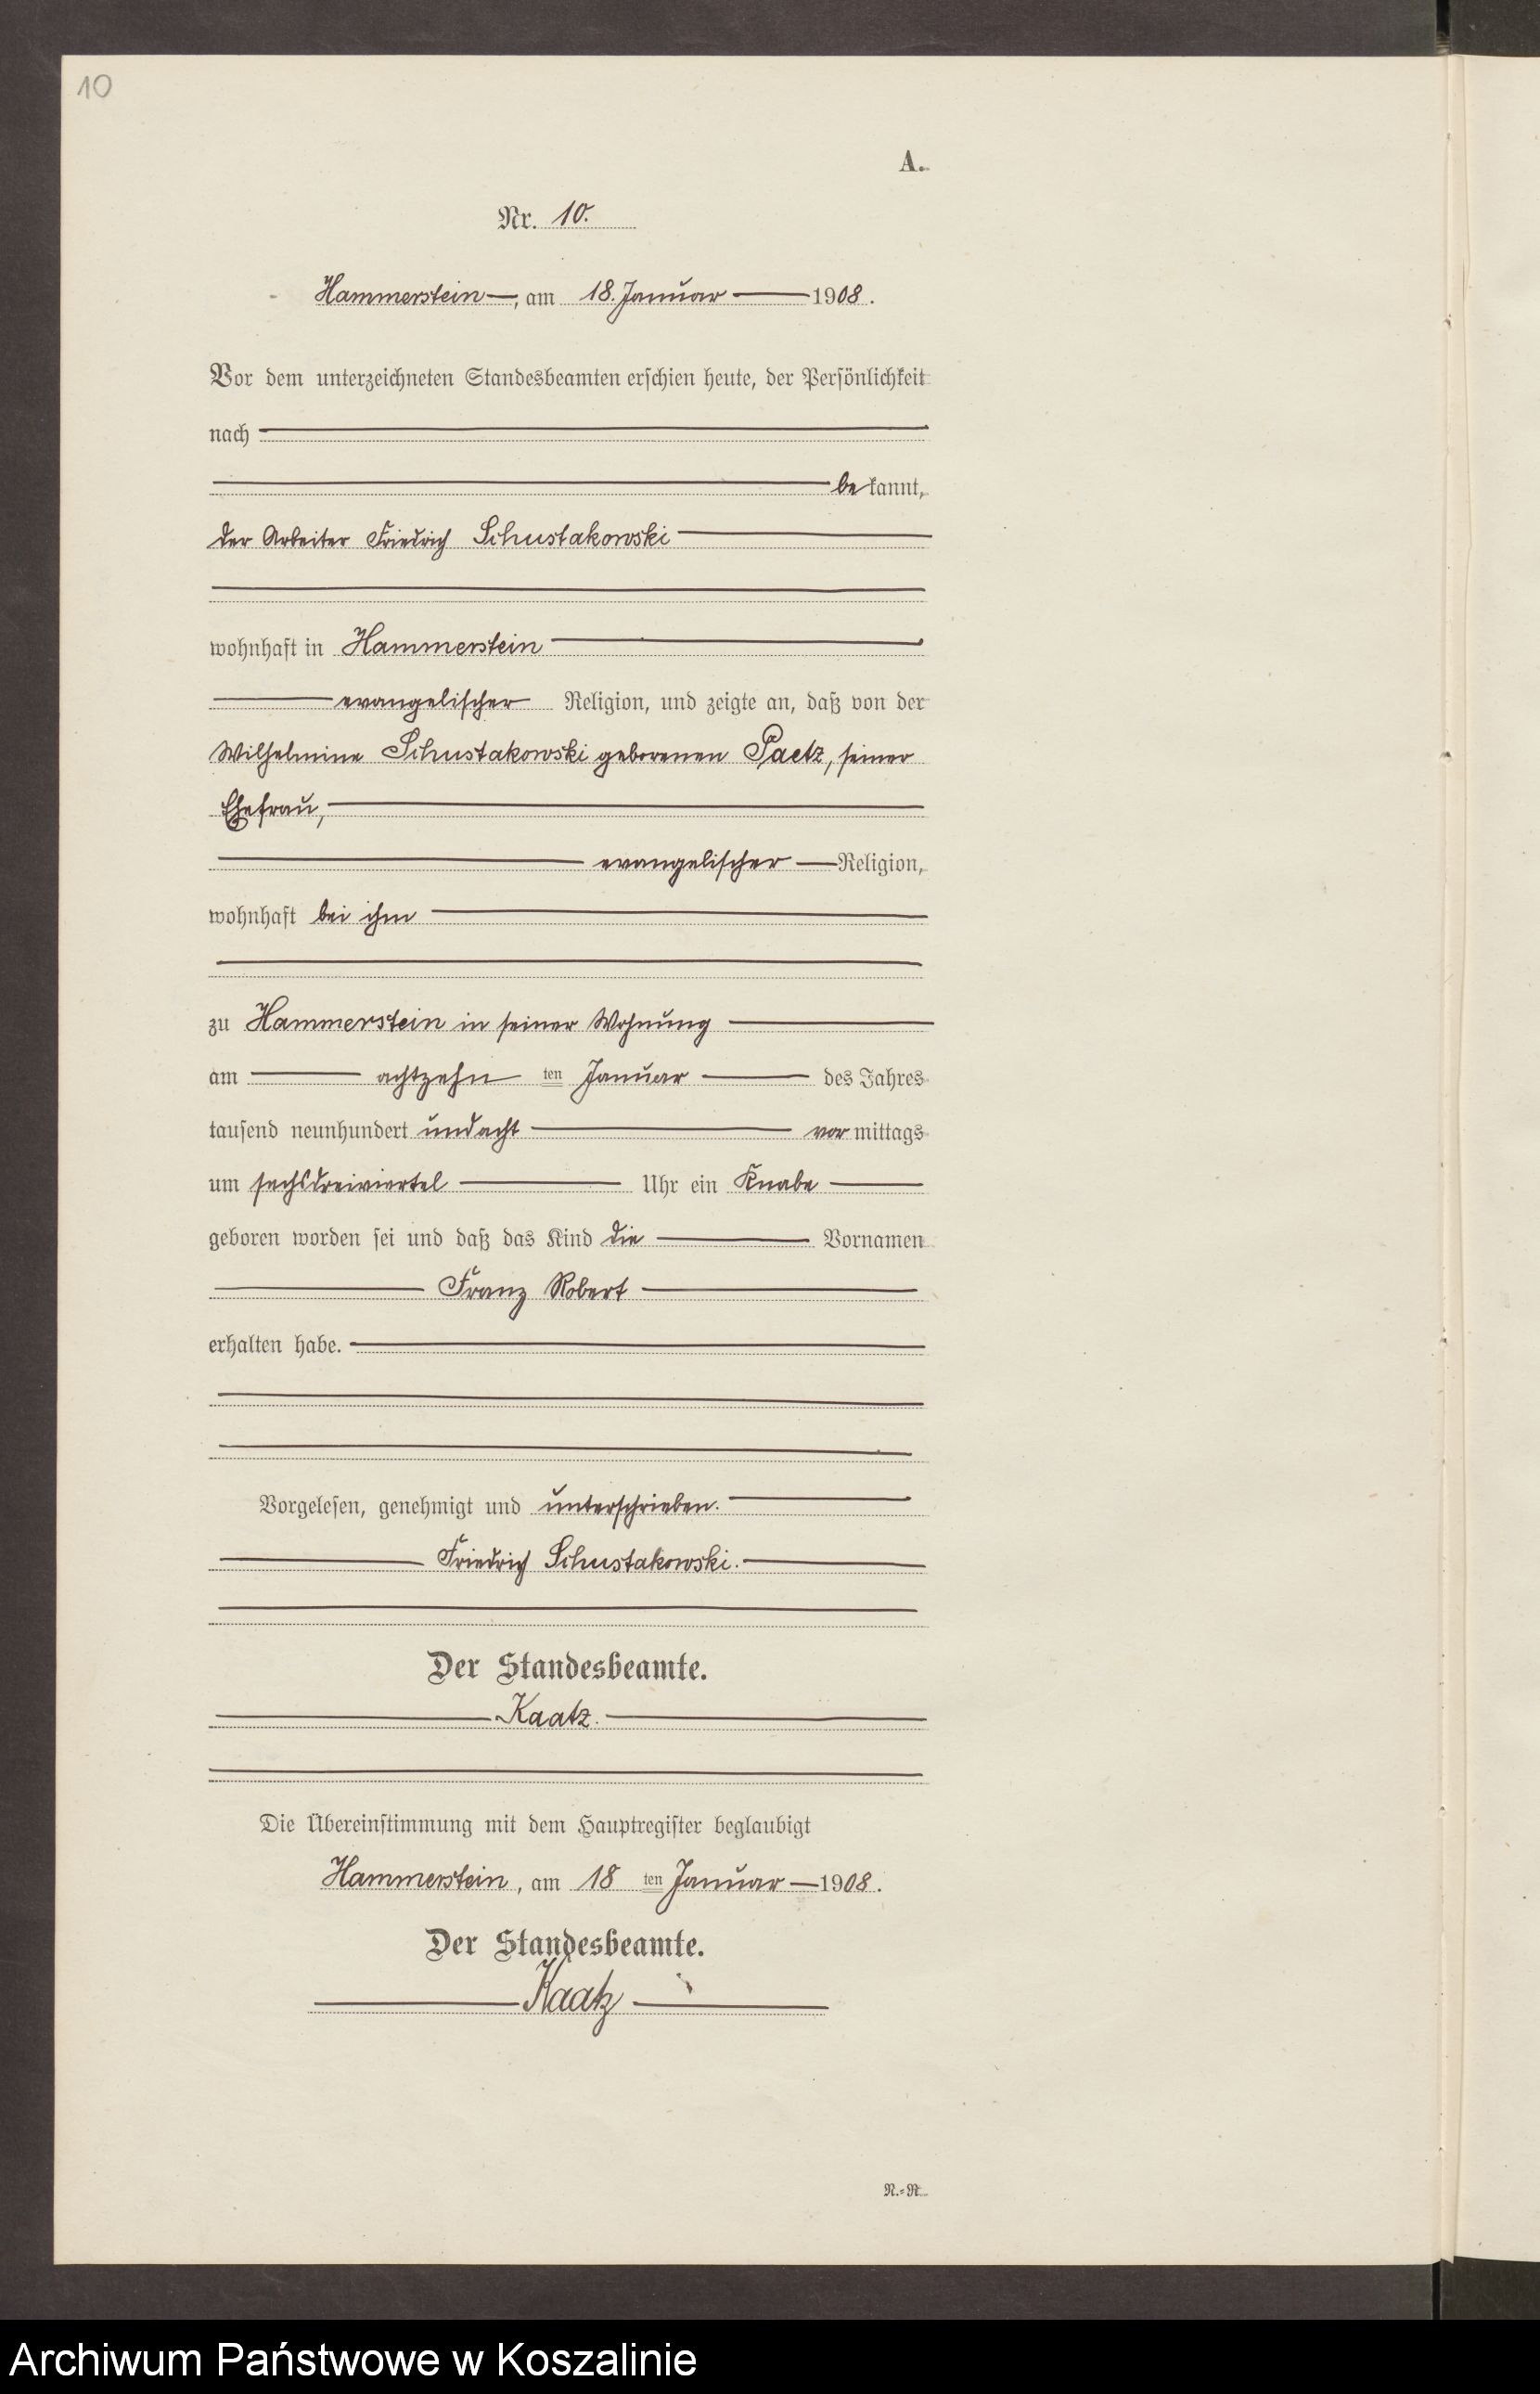 10
A.
Nr. 10.
Hammerstein, am 18. Januar 1908.
Vor dem unterzeichneten Standesbeamten erschien heute, der Persönlichkeit
nach
bekannt,
der Arbeiter Friedrich Schustakowski
wohnhaft in Hammerstein
evangelischer Religion, und zeigte an, daß von der
Wilhelmine Schustakowski geborenen Paetz, seiner
Ehefrau,
evangelischer Religion,
wohnhaft bei ihm
zu Hammerstein in seiner Wohnung
am achtzehn ten Januar des Jahres
tausend neunhundert undacht vormittags
um sechsdreiviertel Uhr ein Knabe
geboren worden sei und daß das Kind die Vornamen
Franz Robert
erhalten habe.
Vorgelesen, genehmigt und unterschrieben.
Friedrich Schustakowski.
Der Standesbeamte.
Kaatz.
Die Übereinstimmung mit dem Hauptregister beglaubigt
Hammerstein, am 18 ten Januar 1908.
Der Standesbeamte.
Kaatz
N.=R.
Archiwum Państwowe w Koszalinie